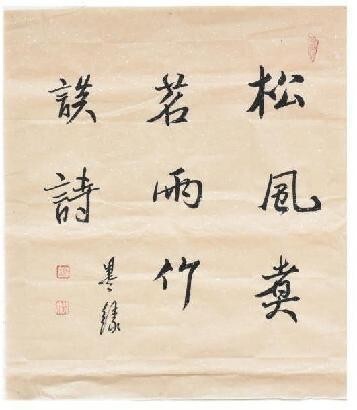 松風煮
茗雨竹
談詩